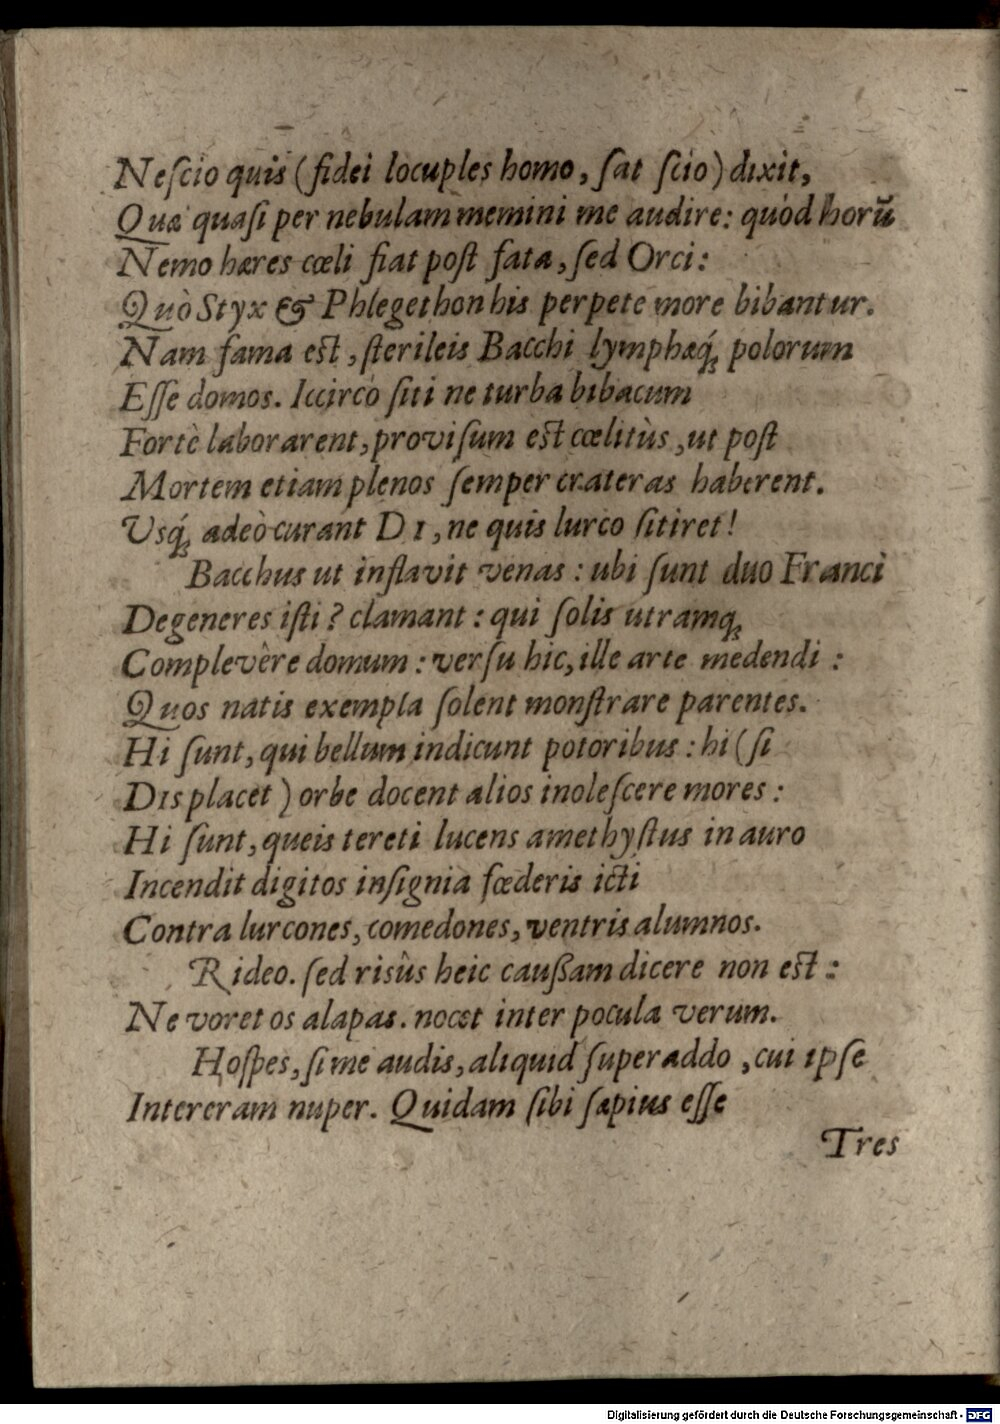 Neſcio quis (fidei locuples homo, ſat ſcio) dixit,
Quæ quaſi per nebulam memini me audire: quòd horũ
Nemo hæres cœli fiat poſt fata, ſed Orci:
Quò Styx & Phlegethon his perpete more bibantur.
Nam fama eſt, ſterileis Bacchi lymphæq́; polorum
Eſſe domos. Iccircò ſiti ne turba bibacum
Fortè laborarent, proviſum eſt cœlitùs, ut poſt
Mortem etiam plenos ſemper crateras haberent.
Uſq́; adeò curant DI, ne quis lurco ſitiret!
Bacchus ut inflavit venas: ubi ſunt duo Franci
Degeneres iſti? clamant: qui ſolis utramq;
Complevêre domum: verſu hic, ille arte medendi:
Quos natis exempla ſolent monſtrare parentes.
Hi ſunt, qui bellum indicunt potoribus: hi (ſi
DIs placet) orbe docent alios inoleſcere mores:
Hi ſunt, queis tereti lucens amethyſtus in auro
Incendit digitos inſignia fœderis icti
Contra lurcones, comedones, ventris alumnos.
Rideo. ſed risûs heic cauſſam dicere non eſt:
Ne voret os alapas. nocet inter pocula verum.
Hoſpes, ſi me audis, aliquid ſuperaddo, cui ipſe
Intereram nuper. Quidam ſibi ſæpius eſſe
Tres
Digitalisierung gefördert durch die Deutsche Forschungsgemeinschaft - DFG